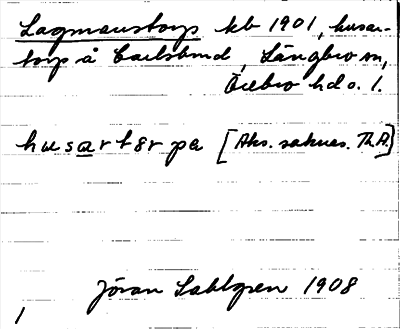 Lagmanstorp kb 1901, husar-
torp å Carlslund, Längbro sn,
Örebro hd o. l.
husartørpa [Aks. saknas. Th.A.]
Jöran Sahlgren 1908
1